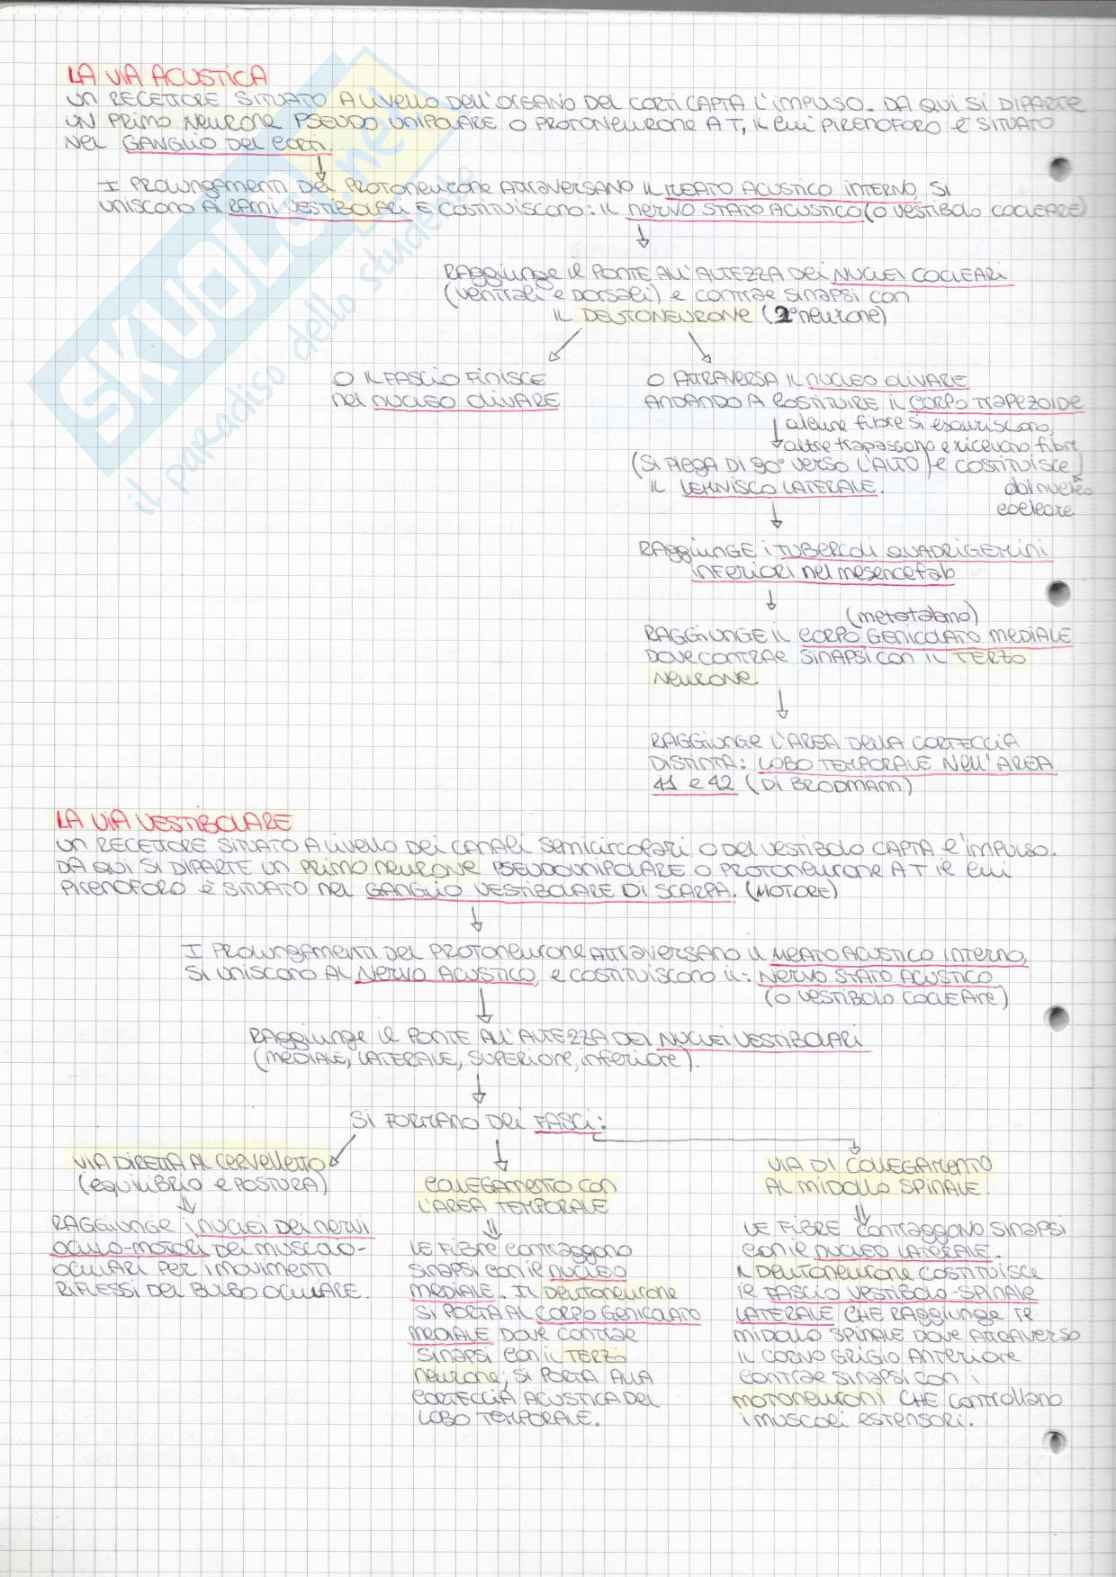 LA VIA ACUSTICA
UN RECETTORE SITUATO A LIVELLO DELL'ORGANO DEL CORTI CAPTA L'IMPULSO. DA QUI SI DIPARTE
UN PRIMO NEURONE PSEUDO UNIPOLARE O PROTONEURONE A T, IL CUI PIRENOFORO È SITUATO
NEL GANGLIO DEL CORTI.
I PROLUNGAMENTI DEL PROTONEURONE ATTRAVERSANO IL MEATO ACUSTICO INTERNO, SI
UNISCONO AI RAMI VESTIBOLARI E COSTITUISCONO: IL NERVO STATO ACUSTICO (O VESTIBOLO COCLEARE)
RAGGIUNGE IL PONTE ALL'ALTEZZA DEI NUCLEI COCLEARI
(VENTRALI E DORSALI) E CONTRAE SINAPSI CON
IL DEUTONEURONE (2° NEURONE)
O IL FASCIO FINISCE
NEL NUCLEO OLIVARE
O ATTRAVERSA IL NUCLEO OLIVARE
ANDANDO A COSTITUIRE IL CORPO TRAPEZOIDE
alcune fibre si esauriscono,
altre trapassano e ricevono fibre
(SI PIEGA DI 90° VERSO L'ALTO) E COSTITUISCE
IL LEMNISCO LATERALE.
dal nucleo
cocleare
RAGGIUNGE I TUBERCOLI QUADRIGEMINI
INFERIORI NEL MESENCEFALO
(metatalamo)
RAGGIUNGE IL CORPO GENICOLATO MEDIALE
DOVE CONTRAE SINAPSI CON IL TERZO
NEURONE
RAGGIUNGE L'AREA DELLA CORTECCIA
DISTINTA: LOBO TEMPORALE NELL'AREA
41 e 42 (DI BRODMANN)
LA VIA VESTIBOLARE
UN RECETTORE SITUATO A LIVELLO DEI CANALI SEMICIRCOLARI O DEL VESTIBOLO CAPTA L'IMPULSO.
DA QUI SI DIPARTE UN PRIMO NEURONE PSEUDOUNIPOLARE O PROTONEURONE A T IL CUI
PIRENOFORO È SITUATO NEL GANGLIO VESTIBOLARE DI SCARPA. (MOTORE)
I PROLUNGAMENTI DEL PROTONEURONE ATTRAVERSANO IL MEATO ACUSTICO INTERNO,
SI UNISCONO AL NERVO ACUSTICO, E COSTITUISCONO IL: NERVO STATO ACUSTICO
(O VESTIBOLO COCLEARE)
RAGGIUNGE IL PONTE ALL'ALTEZZA DEI NUCLEI VESTIBOLARI
(MEDIALE, LATERALE, SUPERIORE, INFERIORE).
SI FORMANO DEI FASCI:
VIA DIRETTA AL CERVELLETTO
(EQUILIBRIO E POSTURA)
RAGGIUNGE I NUCLEI DEI NERVI
OCULO-MOTORI DEI MUSCOLO-
OCULARI PER I MOVIMENTI
RIFLESSI DEL BULBO OCULARE.
COLLEGAMENTO CON
L'AREA TEMPORALE
LE FIBRE CONTRAGGONO
SINAPSI CON IL NUCLEO
MEDIALE. IL DEUTONEURONE
SI PORTA AL CORPO GENICOLATO
MEDIALE DOVE CONTRAE
SINAPSI CON IL TERZO
NEURONE; SI PORTA ALLA
CORTECCIA ACUSTICA DEL
LOBO TEMPORALE.
VIA DI COLLEGAMENTO
AL MIDOLLO SPINALE.
LE FIBRE CONTRAGGONO SINAPSI
CON IL NUCLEO LATERALE.
IL DEUTONEURONE COSTITUISCE
IL FASCIO VESTIBOLO-SPINALE
LATERALE CHE RAGGIUNGE IL
MIDOLLO SPINALE DOVE ATTRAVERSO
IL CORNO GRIGIO ANTERIORE
CONTRAE SINAPSI CON I
MOTONEURONI CHE CONTROLLANO
I MUSCOLI ESTENSORI.
SKUOLA.net
il paradiso dello studente